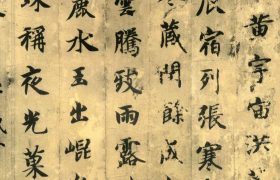 黃宇宙洪
辰宿列張寒
藏閏餘成
雲騰致雨露
麗水玉出崐
珠稱夜光菓